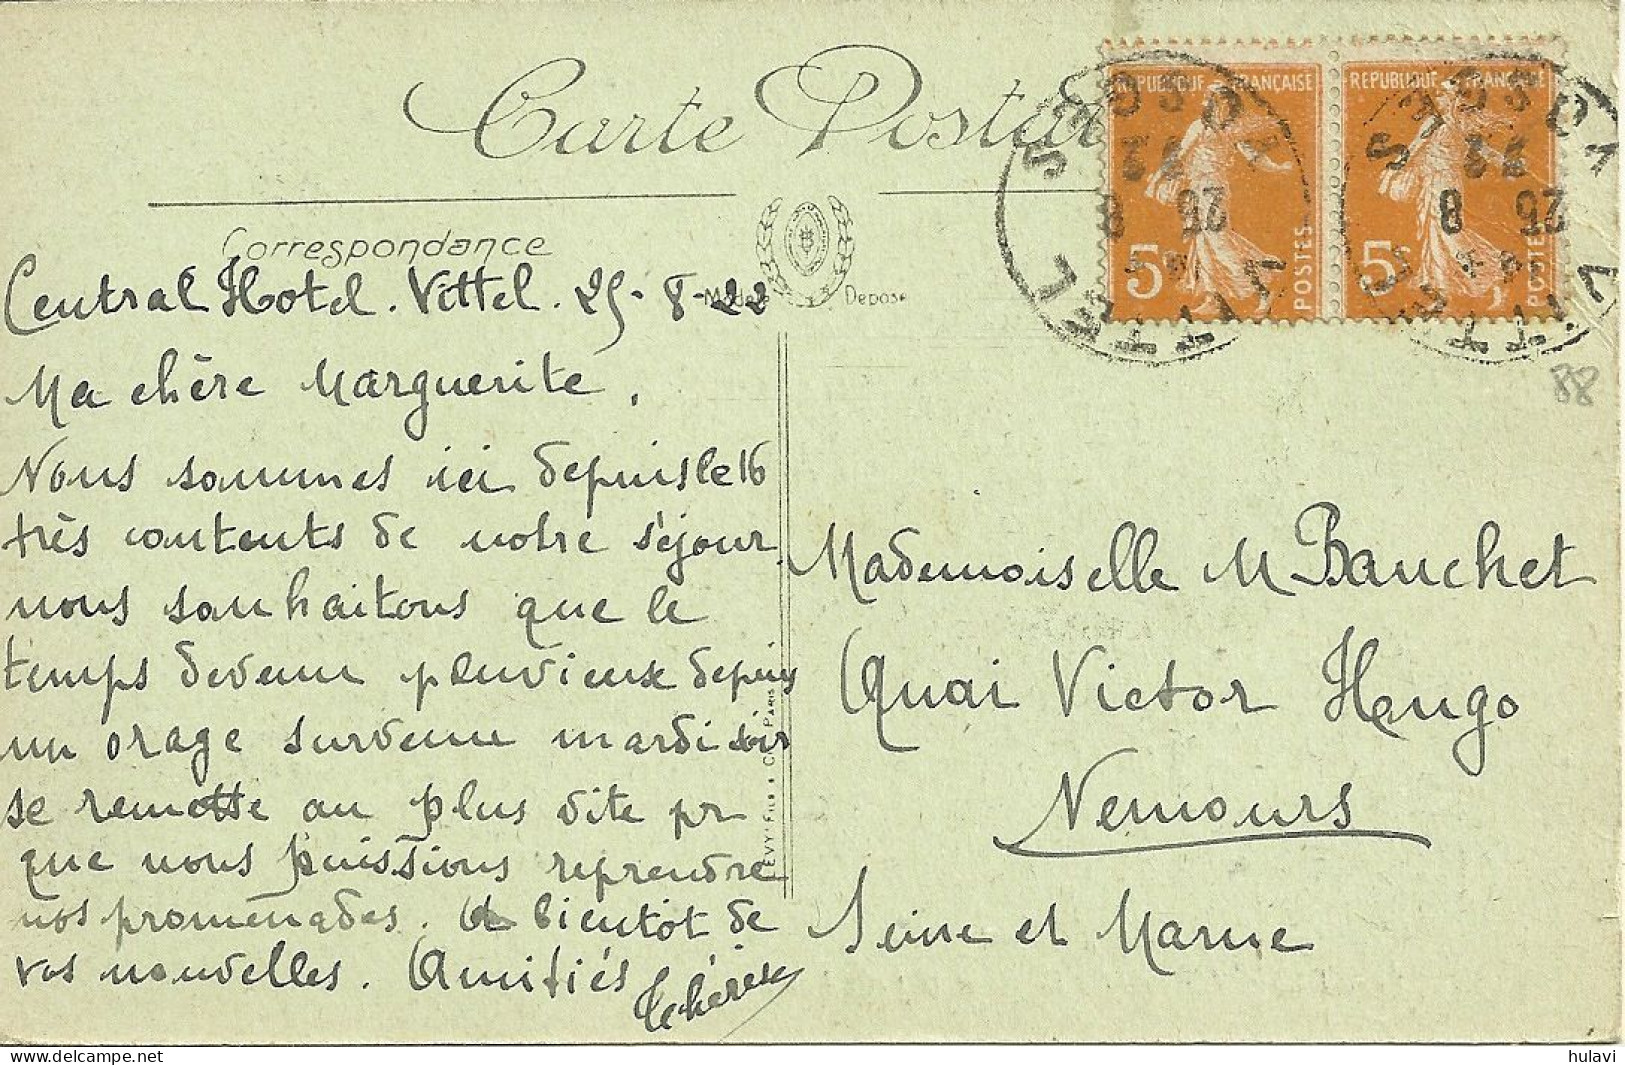 Carte Postale
Correspondance
Modèle Déposé
Central Hotel. Vittel. 25-8-22
Ma chère Marguerite,
Nous sommes ici depuis le 16
très contents de notre séjour
nous souhaitons que le
temps devenu pluvieux depuis
un orage survenu mardi soir
se remette au plus vite pr
que nous puissions reprendre
nos promenades. A bientôt de
vos nouvelles. Amitiés
Thérèse
LEVY Fils & Cie PARIS
REPUBLIQUE FRANÇAISE
5c
POSTES
REPUBLIQUE FRANÇAISE
5c
POSTES
VITTEL
VOSGES
25 8
22
88
Mademoiselle M Bauchet
Quai Victor Hugo
Nemours
Seine et Marne
hulavi